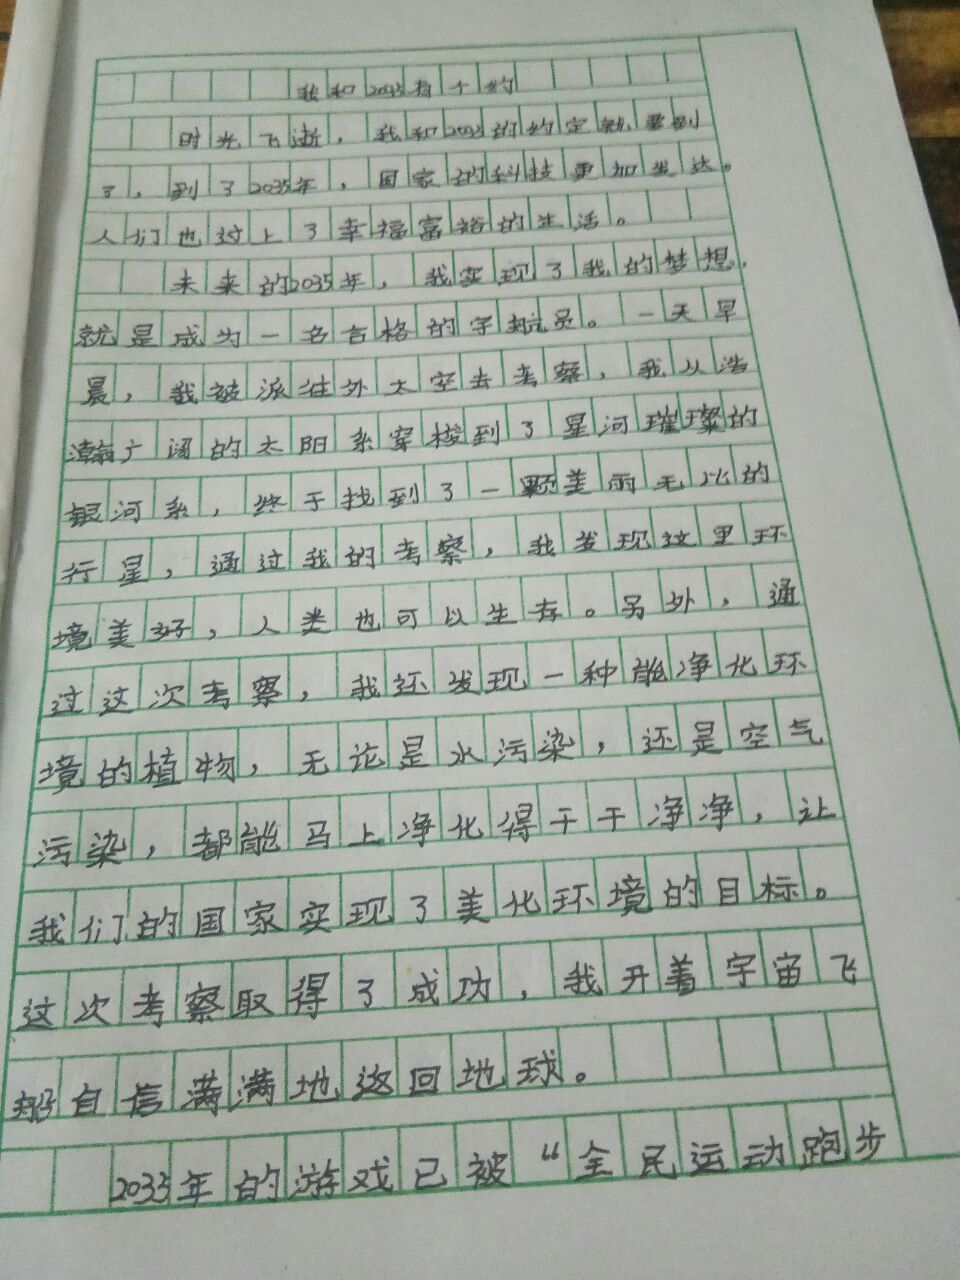 我和2035有个约
时光飞逝，我和2035的约定就要到
了，到了2035年，国家的科技更加发达。
人们也过上了幸福富裕的生活。
未来的2035年，我实现了我的梦想，
就是成为一名合格的宇航员。一天早
晨，我被派往外太空去考察，我从浩
瀚广阔的太阳系穿梭到了星河璀璨的
银河系，终于找到了一颗美丽无比的
行星，通过我的考察，我发现这里环
境美好，人类也可以生存。另外，通
过这次考察，我还发现一种能净化环
境的植物，无论是水污染，还是空气
污染，都能马上净化得干干净净，让
我们的国家实现了美化环境的目标。
这次考察取得了成功，我开着宇宙飞
船自信满满地返回地球。
2035年的游戏已被“全民运动跑步